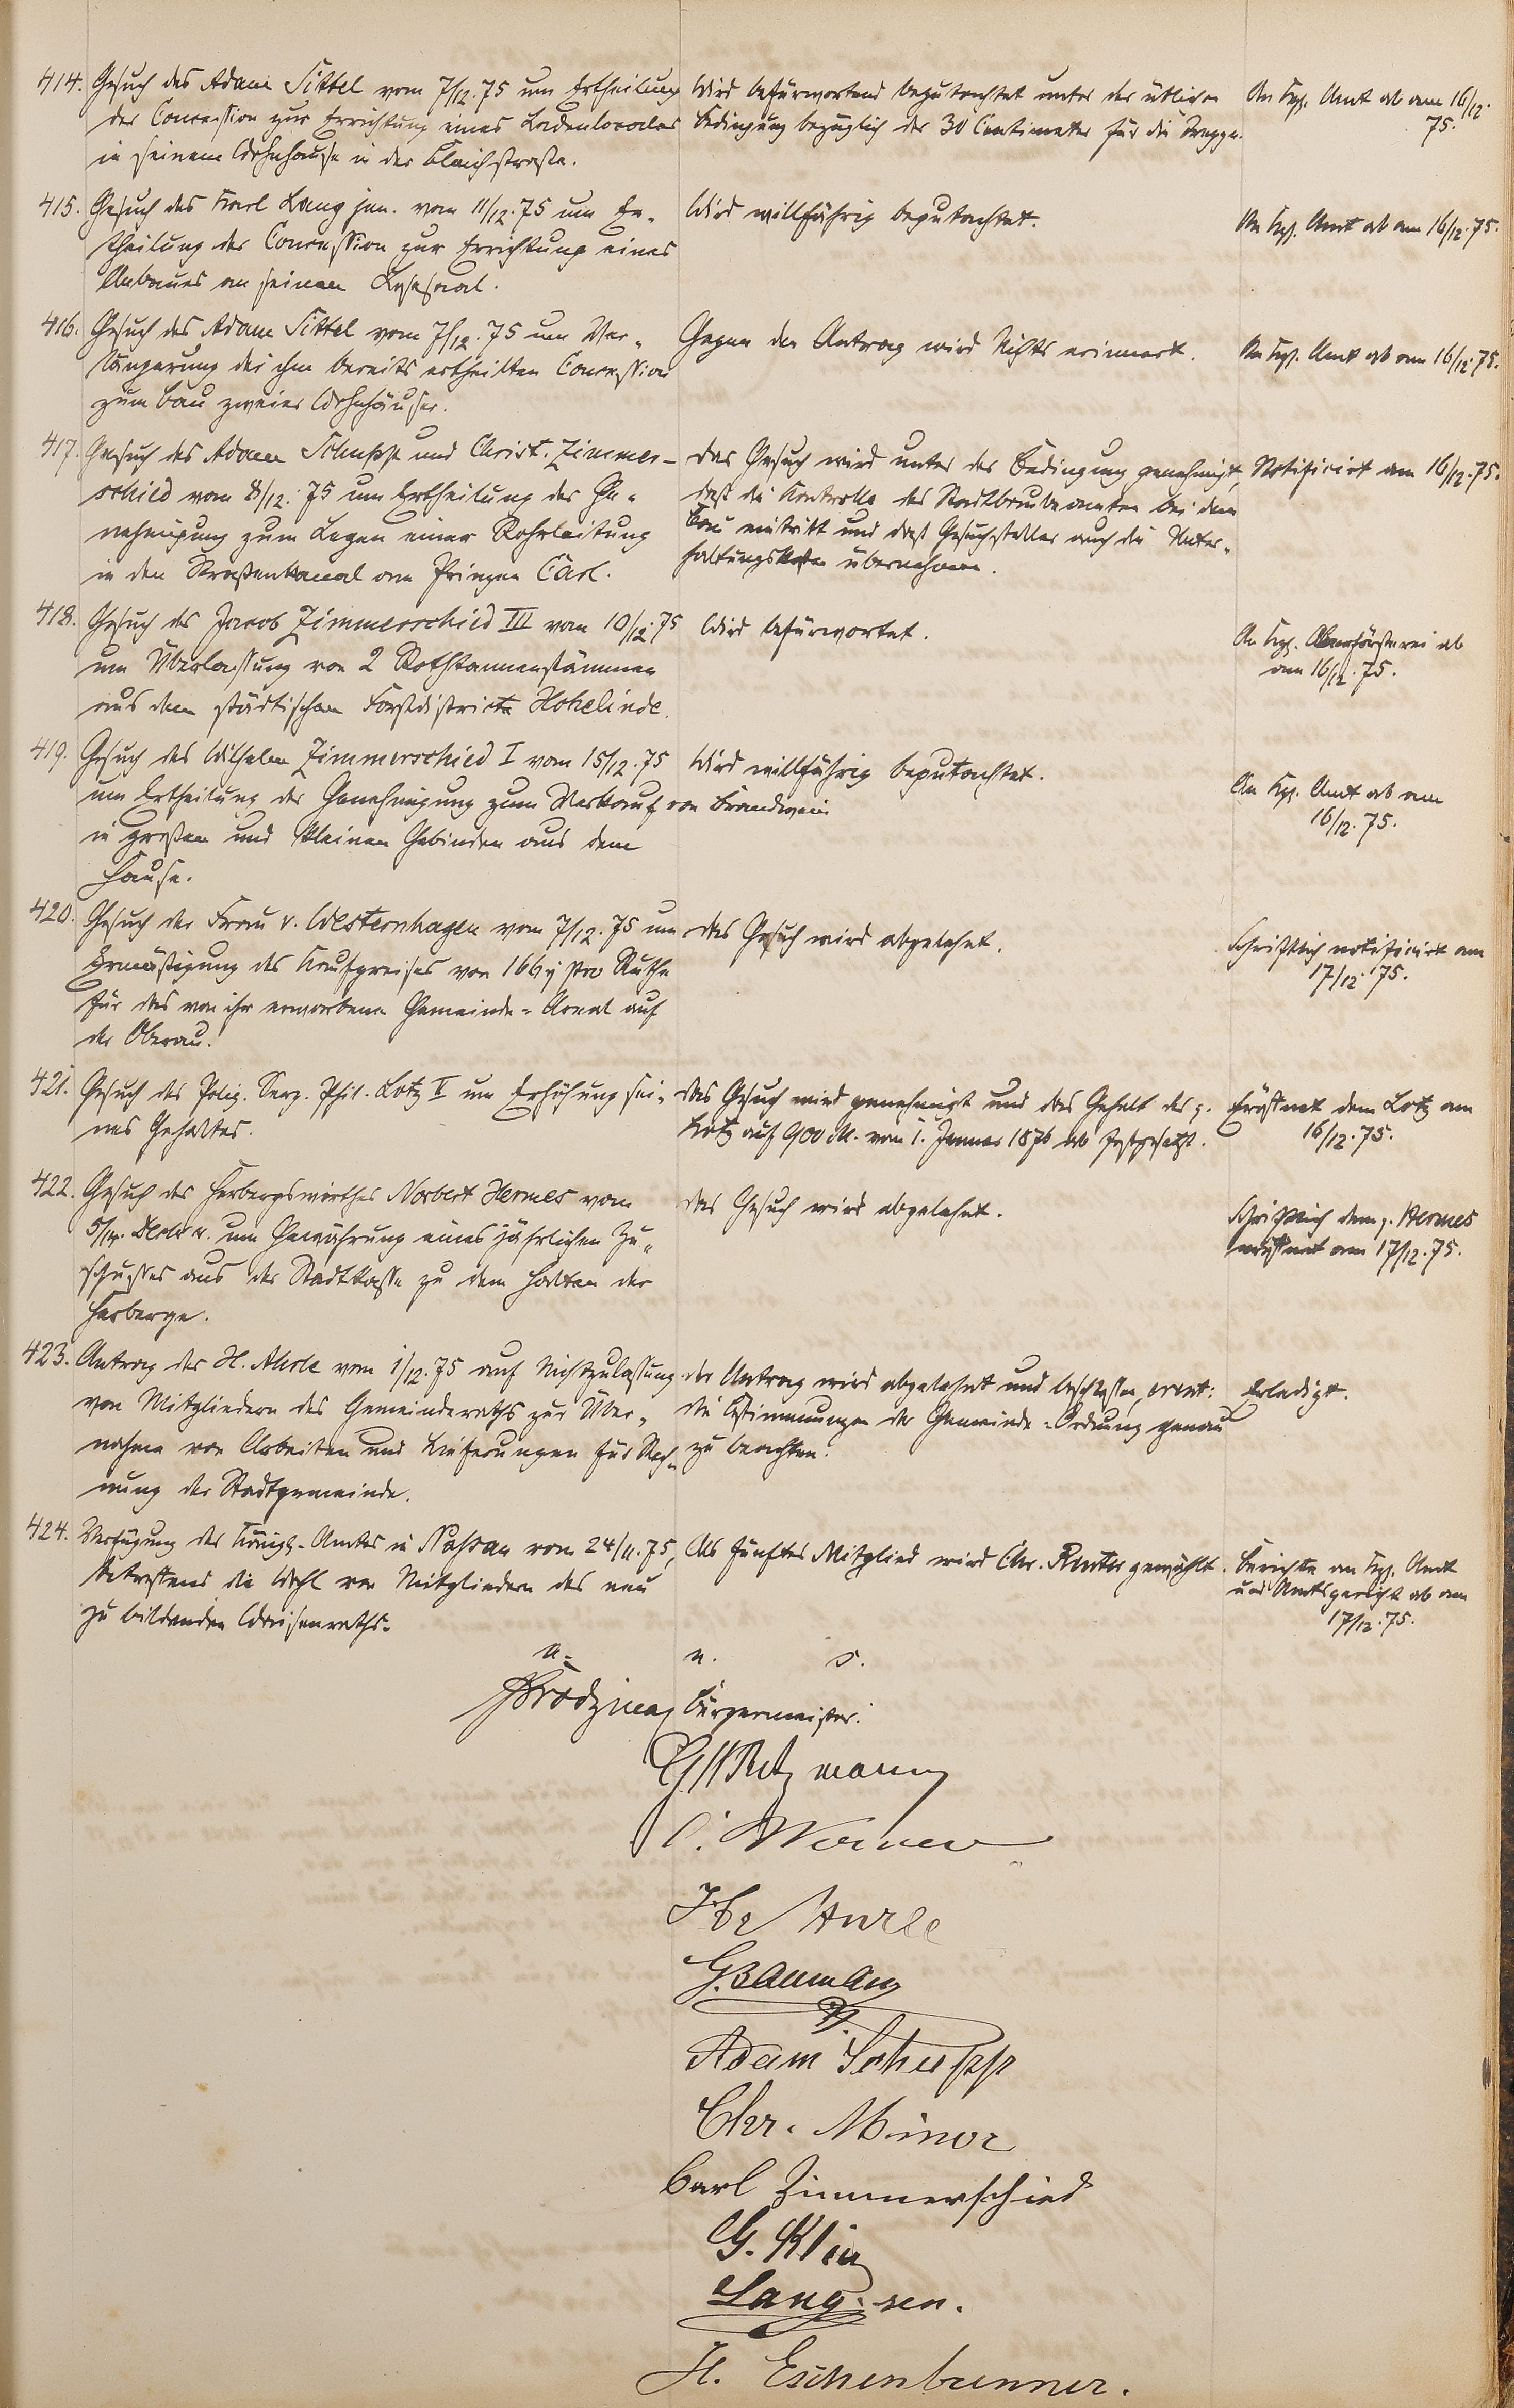 414. Gesuch des Adam Sittel vom 7/12. 75 um Ertheilung
der Concession zur Errichtung eines Ladenlocales
in seinem Wohnhause in der Bleichstrasse.
Wird befürwortend begutachtet unter der üblichen
Bedingung bezüglich der 30 Centimeter für die Treppe.
An Kgl. Amt ab am 16/12.
75.
415. Gesuch des Karl Lang jun. vom 11/12. 75 um Er-
theilung der Concession zur Errichtung eines
Anbaues an seinen Lesesaal.
Wird willfährig begutachtet.
An Kgl. Amt ab am 16/12. 75.
416. Gesuch des Adam Sittel vom 7/12. 75 um Ver-
längerung der ihm bereits ertheilten Concession
zum Bau zweier Wohnhäuser.
Gegen den Antrag wird Nichts erinnert.
An Kgl. Amt ab am 16/12. 75.
417. Gesuch des Adam Schupp und Christ. Zimmer-
schied vom 8/12. 75 um Ertheilung der Ge-
nehmigung zum Legen einer Rohrleitung
in den Straßenkanal am Prinzen Carl.
Das Gesuch wird unter der Bedingung genehmigt,
daß die Kontrolle des Stadtbaubeamten bei dem
Bau eintritt und daß Gesuchsteller auch die Unter-
haltungskosten übernehmen.
Notificirt am 16/12. 75.
418. Gesuch des Jacob Zimmerschied III vom 10/12. 75
um Überlassung von 2 Rothtannenstämmen
aus dem städtischen Forstdistricte Hohelinde.
Wird befürwortet.
An Kgl. Oberförsterei ab
am 16/12. 75.
419. Gesuch des Wilhelm Zimmerschied I vom 15/12. 75
um Ertheilung der Genehmigung zum Verkauf von Brandwein
in großen und kleinen Gebinden aus dem
Hause.
Wird willfährig begutachtet.
An Kgl. Amt ab am
16/12. 75.
420. Gesuch der Frau v. Westernhagen vom 7/12. 75 um
Ermäßigung des Kaufpreises von 166 pro Ruthe
für das von ihr erworbene Gemeinde-Areal auf
der Oberau.
Das Gesuch wird abgelehnt.
Schriftlich notificirt am
17/12. 75.
421. Gesuch des Poliz. Serg. Phil. Lotz II um Erhöhung sei-
nes Gehaltes.
Das Gesuch wird genehmigt und das Gehalt des g.
Lotz auf 900 M. vom 1. Januar 1876 ab festgesetzt.
Eröffnet dem Lotz am
16/12. 75.
422. Gesuch des Herbergswirthes Norbert Hermes vom
um Gewährung eines jährlichen Zu-
schusses aus der Stadtkasse zu dem Halten der
Herberge.
Das Gesuch wird abgelehnt.
Schriftlich dem g. Hermes
eröffnet am 17/12. 75.
423. Antrag des H. vom 1/12. 75 auf Nichtzulassung
von Mitgliedern des Gemeinderaths zur Über-
nahme von Arbeiten und Lieferungen für Rech-
nung der Stadtgemeinde.
Der Antrag wird abgelehnt und beschlossen, event:
die Bestimmungen der Gemeinde-Ordnung genau
zu beachten.
Erledigt.
424. Verfügung des Königl. Amtes in Nassau vom 24/11. 75,
betreffend die Wahl von Mitgliedern des neu
zu bildenden Waisenraths.
Als fünftes Mitglied wird Chr. gewählt.
Berichte an Kgl. Amt
und Amtsgericht ab am
17/12. 75.
a. u. s.
Bürgermeister.
Adam Schupp
Chr. Minor
Carl Zimmerschied
G. Klein
Lang. sen.
H. Eschenbrenner.